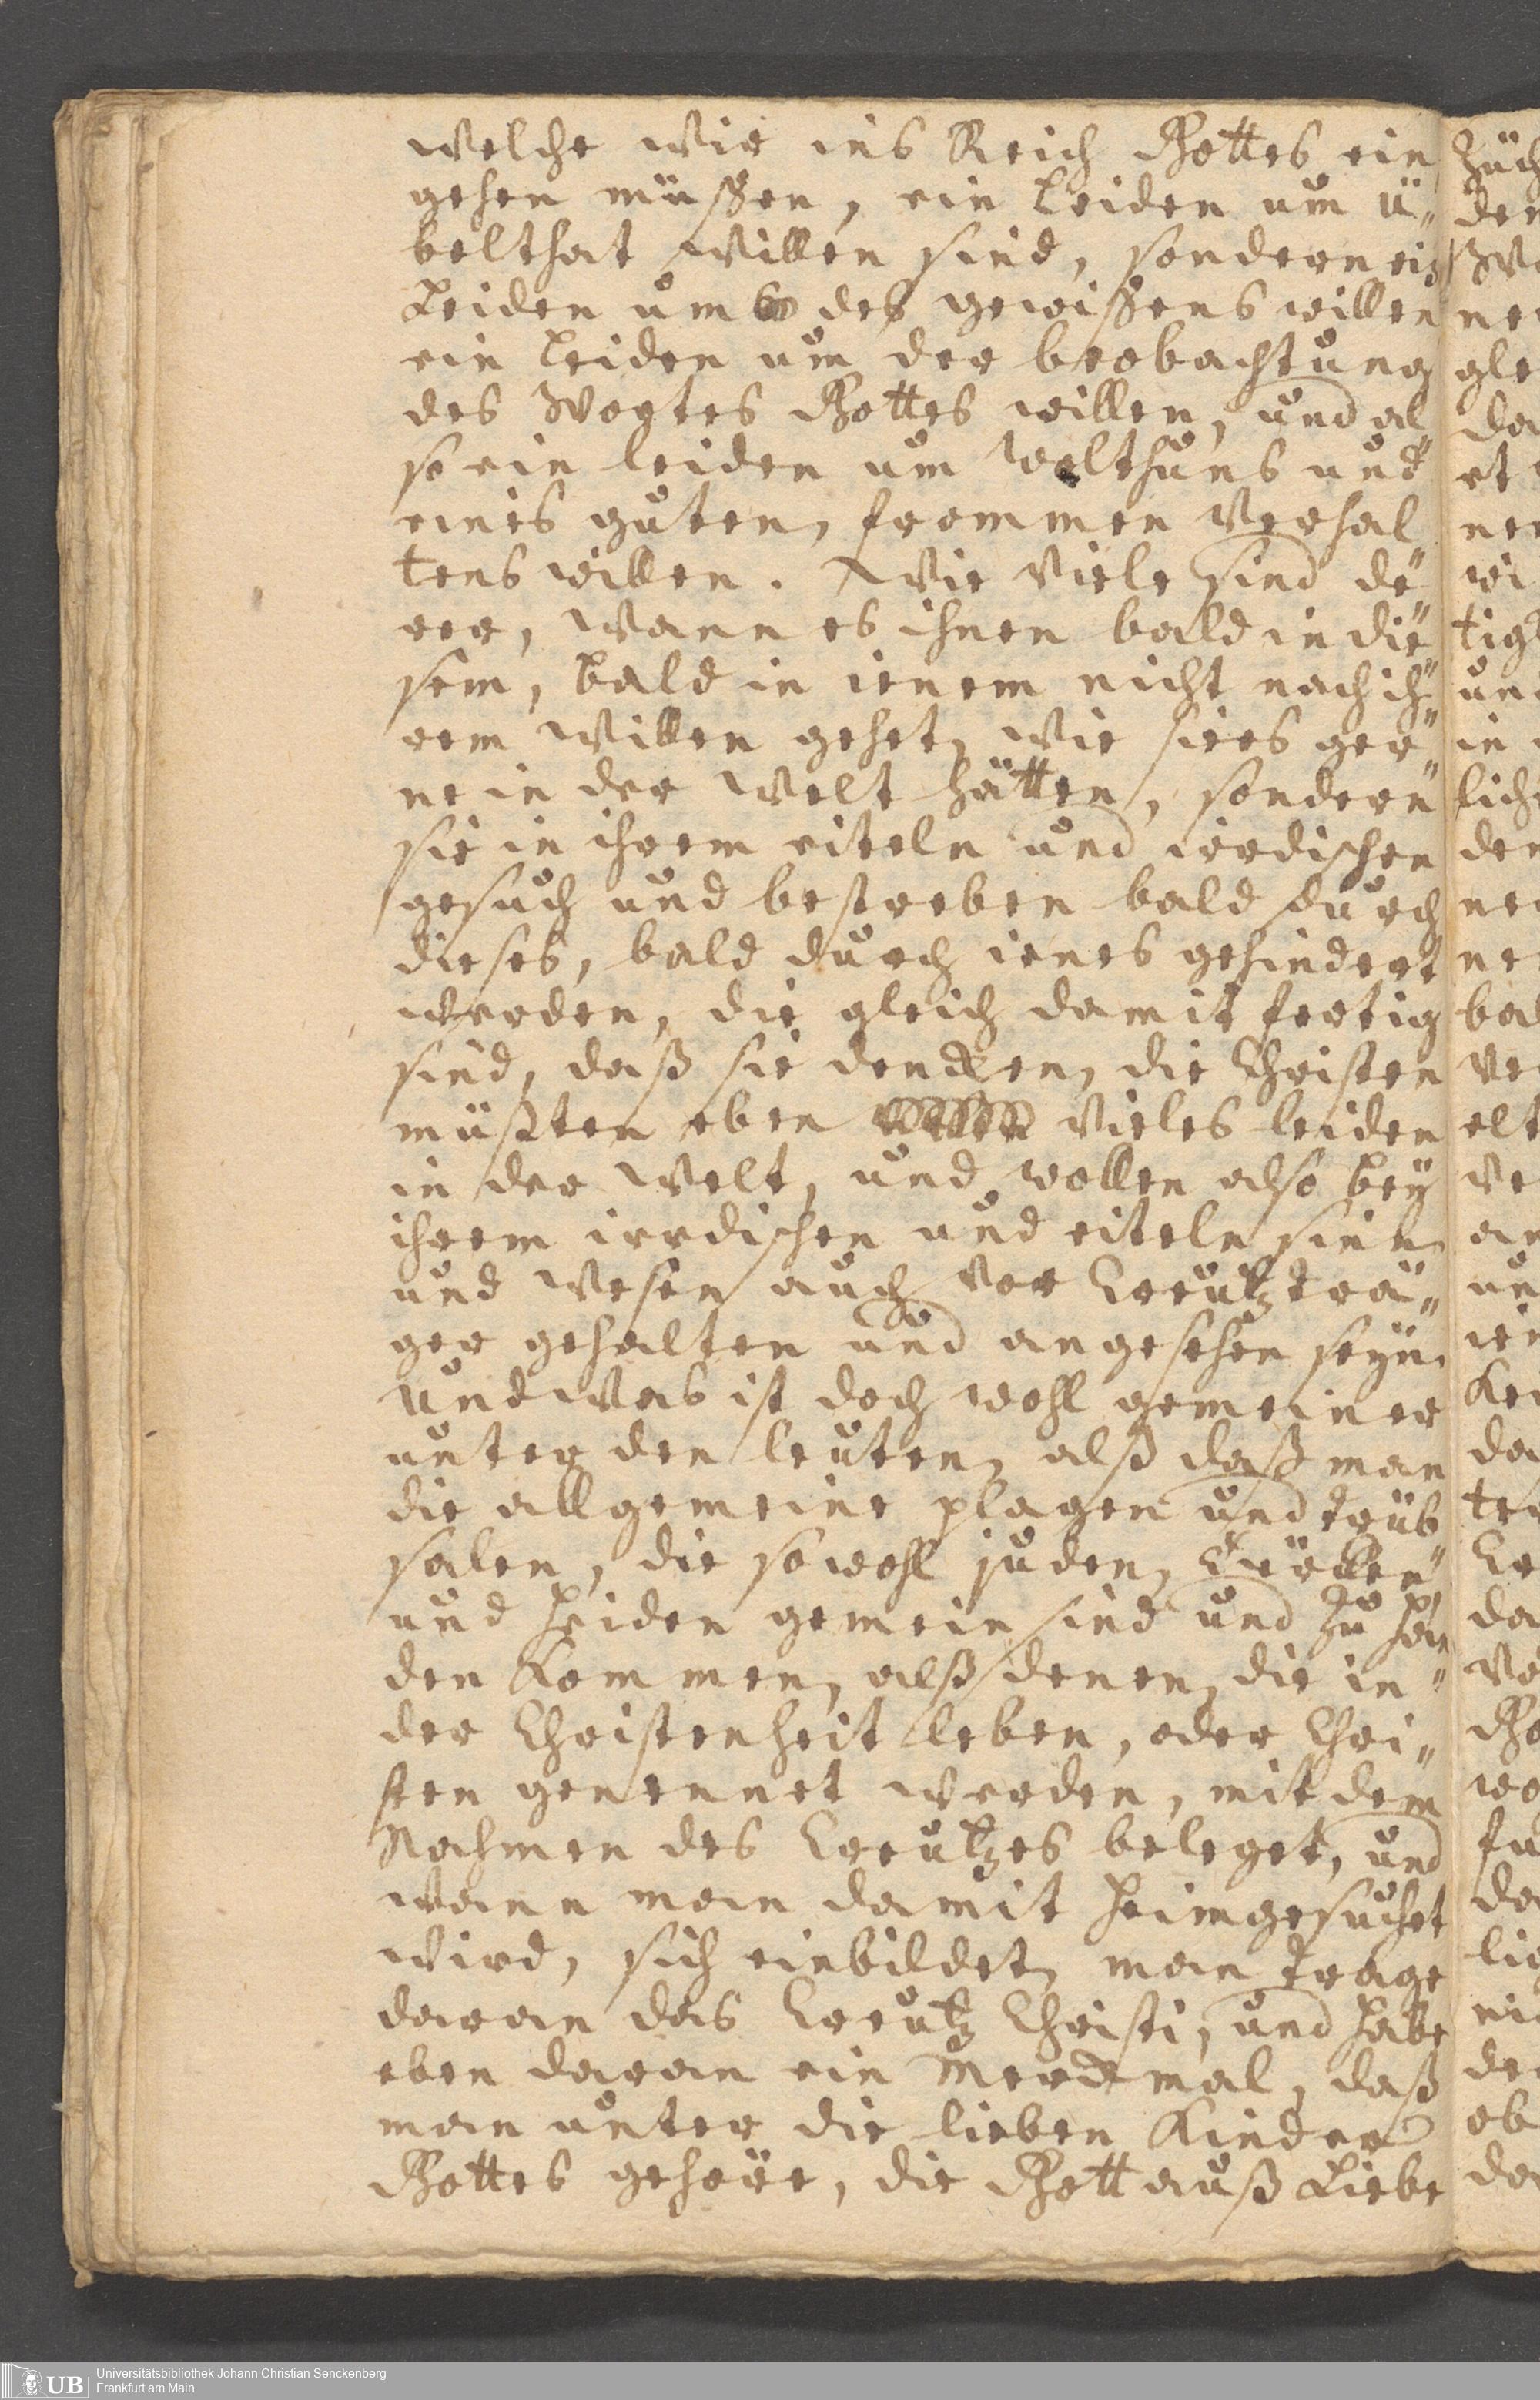 welche wir ins Reich Gottes ein
gehen müssen, ein Leiden um ü„
belthat willen sind, sondern ein
Leiden um des gewissens willen
ein Leiden um der beobachtung
des Wortes Gottes willen, und al„
so ein leiden um wolthuns und
eines guten, frommen Verhal
tens willen. Wie viele sind de„
rer, wann es ihnen bald in die„
sem, bald in ienem nicht nach ih„
rem willen gehet, wie sie es ger„
ne in der welt hätten, sondern
sie in ihrem eiteln und irrdischen
gesuch und bestreben bald durch
dieses, bald durch ienes gehindert
werden, die gleich damit fertig
sind, daß sie dencken, die Christen
müsten eben vieles leiden
in der welt, und wollen also bey
ihrem irrdischen und eiteln sinn
und wesen auch vor Creutzträ„
ger gehalten und angesehen seyn.
Und was ist doch wohl gemeiner
unter den leuten, alß daß man
die allgemeine plagen und trüb
salen, die sowohl juden, Türcken
und Heiden gemein sind und zu han„
den kommen, alß denen, die in„
der Christenheit leben, oder Chri„
sten genennet werden, mit dem
Nahmen des Creutzes beleget, und
wann man damit heimgesuchet
wird, sich einbildet, man trage
daran das Creutz Christi, und habe
eben daran ein Merckmal, daß
man unter die lieben Kinder
Gottes gehöre, die Gott auß Liebe
Züch
der
gle
da
et
ner
wi
tig
und
in
lich
den
ner
ne
bal
ver
elt
ve
an
un
ien
da
ter
Cr
da
Go
wo
da
lic
nic
der
ob
da
Universitätsbibliothek Johann Christian Senckenberg
Frankfurt am Main
UB